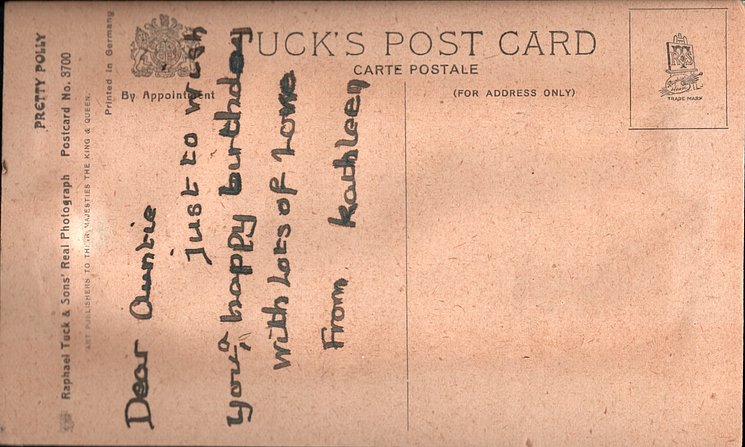 PRETTY POLLY
Raphael Tuck & Sons' Real Photograph Postcard No. 3700
ART PUBLISHERS TO THEIR MAJESTIES THE KING & QUEEN.
Printed in Germany
By Appointment
TUCK'S POST CARD
CARTE POSTALE
(FOR ADDRESS ONLY)
TRADE MARK
Dear Auntie
Just to wish
you a happy birthday
with Lots of Love
From Kathleen